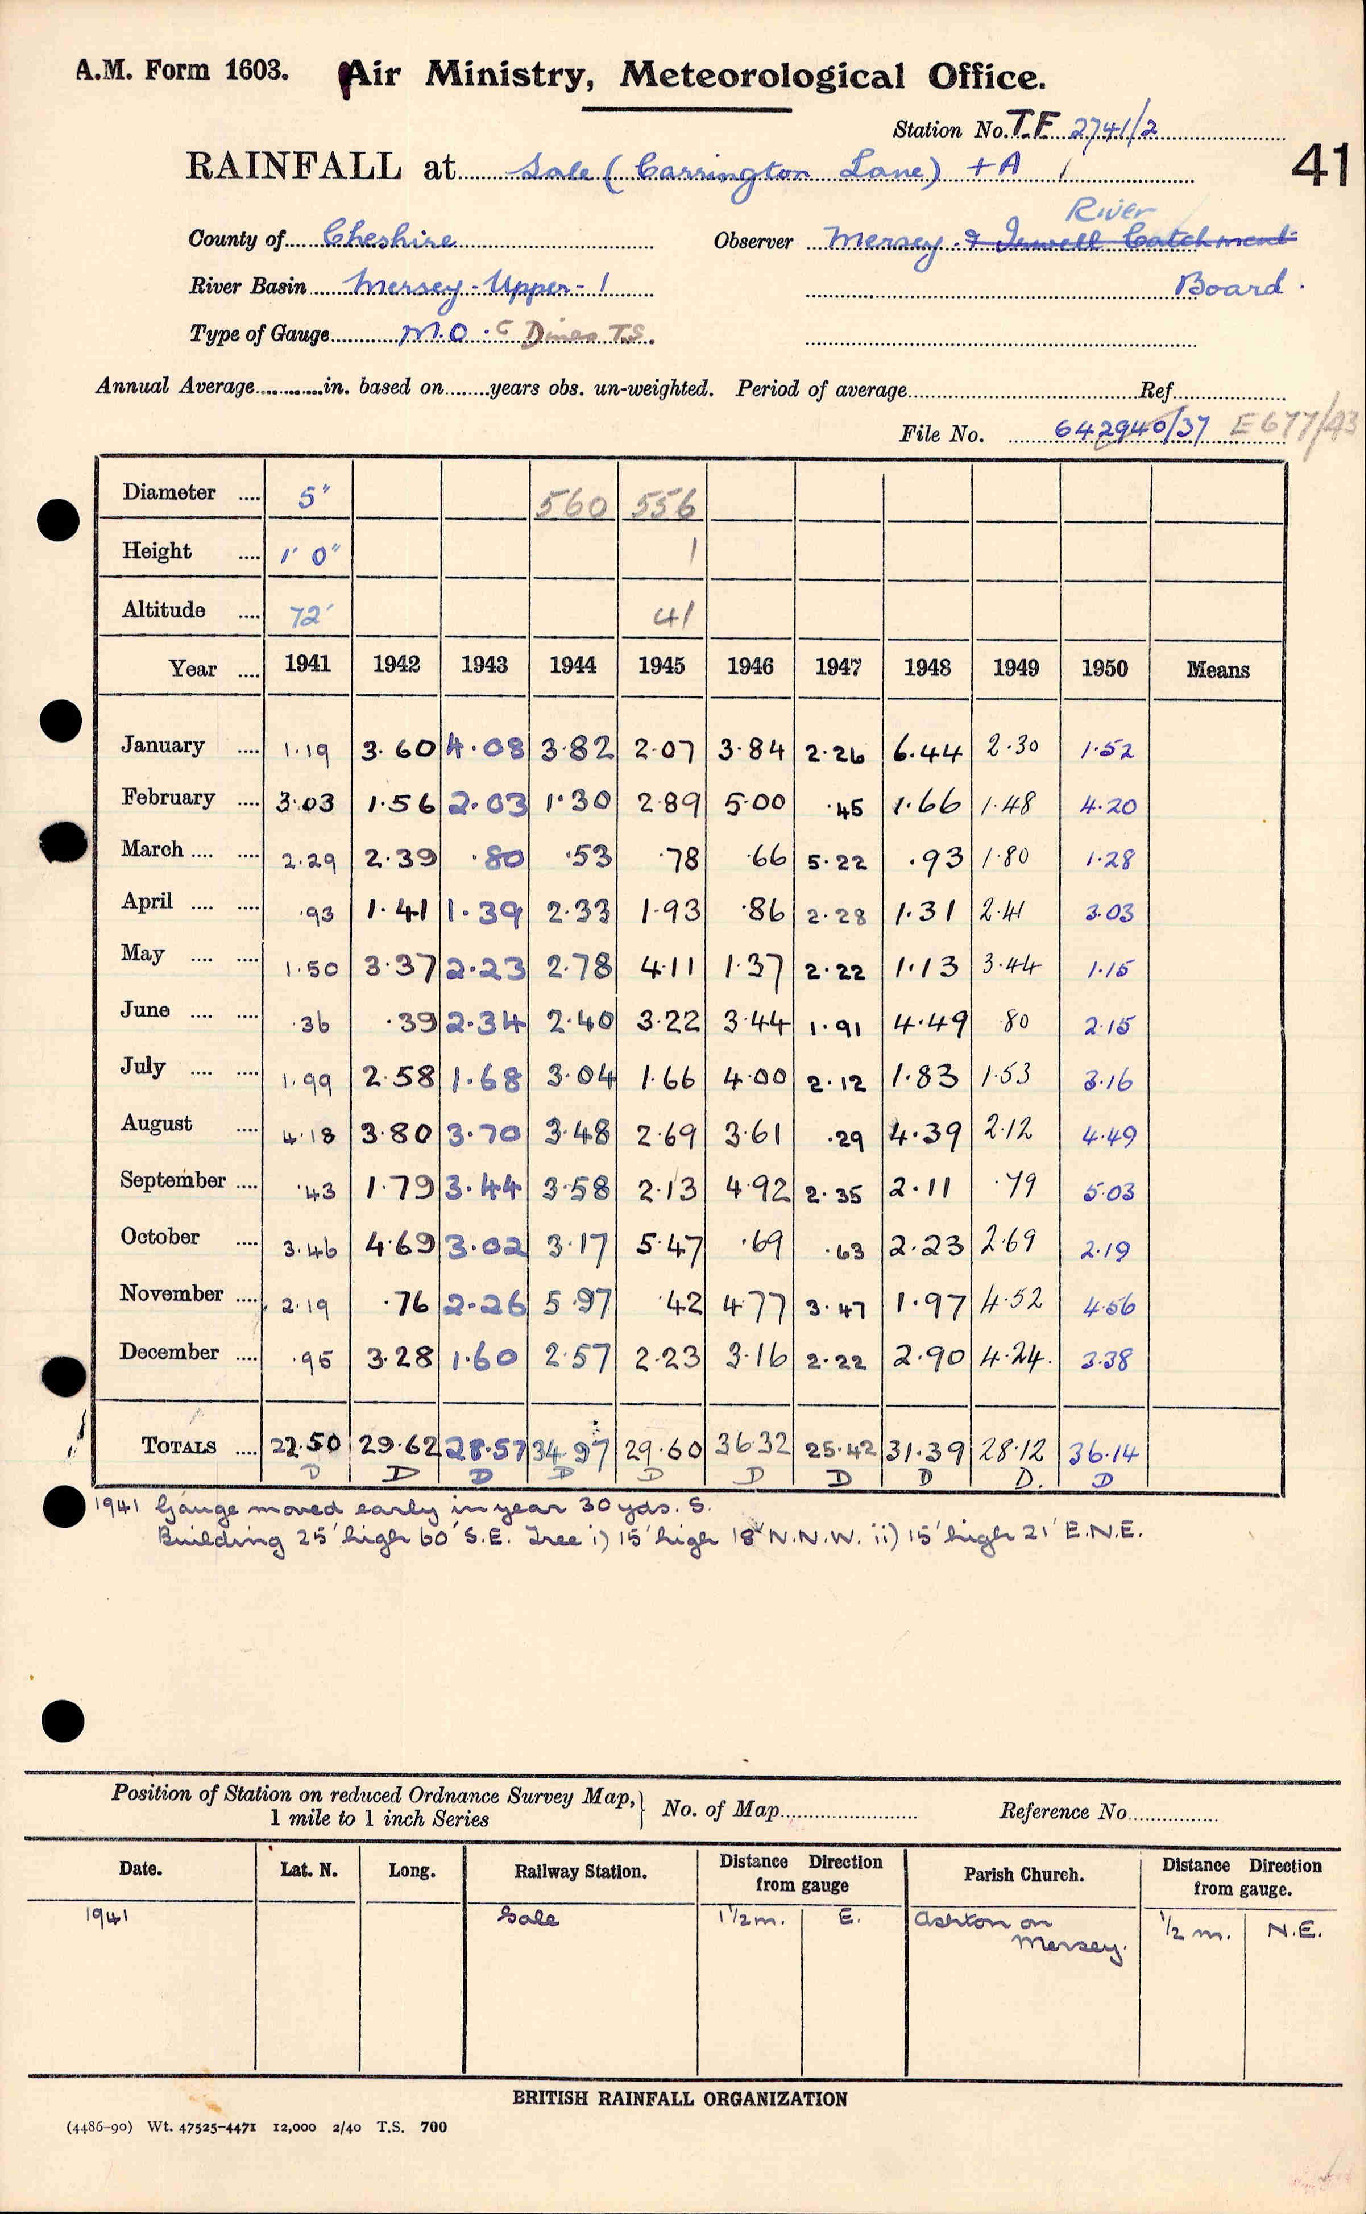 A.M. Form 1603. Air Ministry, Meteorological Office.
Station No. T.F 2741/2
RAINFALL at Sale (Carrington Lane) + A 41
River
County of Cheshire Observer Mersey & Irwell Catchment
River Basin Mersey - Upper - 1 Board.
Type of Gauge M.O. C Dines T.S.
Annual Average in. based on years obs. un-weighted. Period of average Ref
File No. 642940/37 E677/43
Diameter .... 5" 560 556
Height .... 1' 0" 1
Altitude .... 72' 41
Year .... 1941 1942 1943 1944 1945 1946 1947 1948 1949 1950 Means
January .... 1.19 3.60 4.08 3.82 2.07 3.84 2.26 6.44 2.30 1.52
February .... 3.03 1.56 2.03 1.30 2.89 5.00 .45 1.66 1.48 4.20
March .... .... 2.29 2.39 .80 .53 .78 .66 5.22 .93 1.80 1.28
April .... .... .93 1.41 1.39 2.33 1.93 .86 2.28 1.31 2.41 3.03
May .... .... 1.50 3.37 2.23 2.78 4.11 1.37 2.22 1.13 3.44 1.15
June .... .... .36 .39 2.34 2.40 3.22 3.44 1.91 4.49 80 2.15
July .... .... 1.99 2.58 1.68 3.04 1.66 4.00 2.12 1.83 1.53 3.16
August .... 4.18 3.80 3.70 3.48 2.69 3.61 .29 4.39 2.12 4.49
September .... .43 1.79 3.44 3.58 2.13 4.92 2.35 2.11 .79 5.03
October .... 3.46 4.69 3.02 3.17 5.47 .69 .63 2.23 2.69 2.19
November .... 2.19 .76 2.26 5.97 .42 4.77 3.47 1.97 4.52 4.56
December .... .95 3.28 1.60 2.57 2.23 3.16 2.22 2.90 4.24. 3.38
TOTALS .... 22.50 29.62 28.57 34.97 29.60 36.32 25.42 31.39 28.12 36.14
D D D D D D D D D. D
1941 Gauge moved early in year 30 yds. S.
Building 25' high 60' S.E. Tree i) 15' high 18' N.N.W. ii) 15' high 21' E.N.E.
Position of Station on reduced Ordnance Survey Map, } No. of Map Reference No
1 mile to 1 inch Series
Date. Lat. N. Long. Railway Station. Distance Direction from gauge Parish Church. Distance Direction from gauge.
1941 Sale 1 1/2 m. E. Ashton on 1/2 m. N.E.
Mersey.
BRITISH RAINFALL ORGANIZATION
(4486-90) Wt. 47525-4471 12,000 2/40 T.S. 700